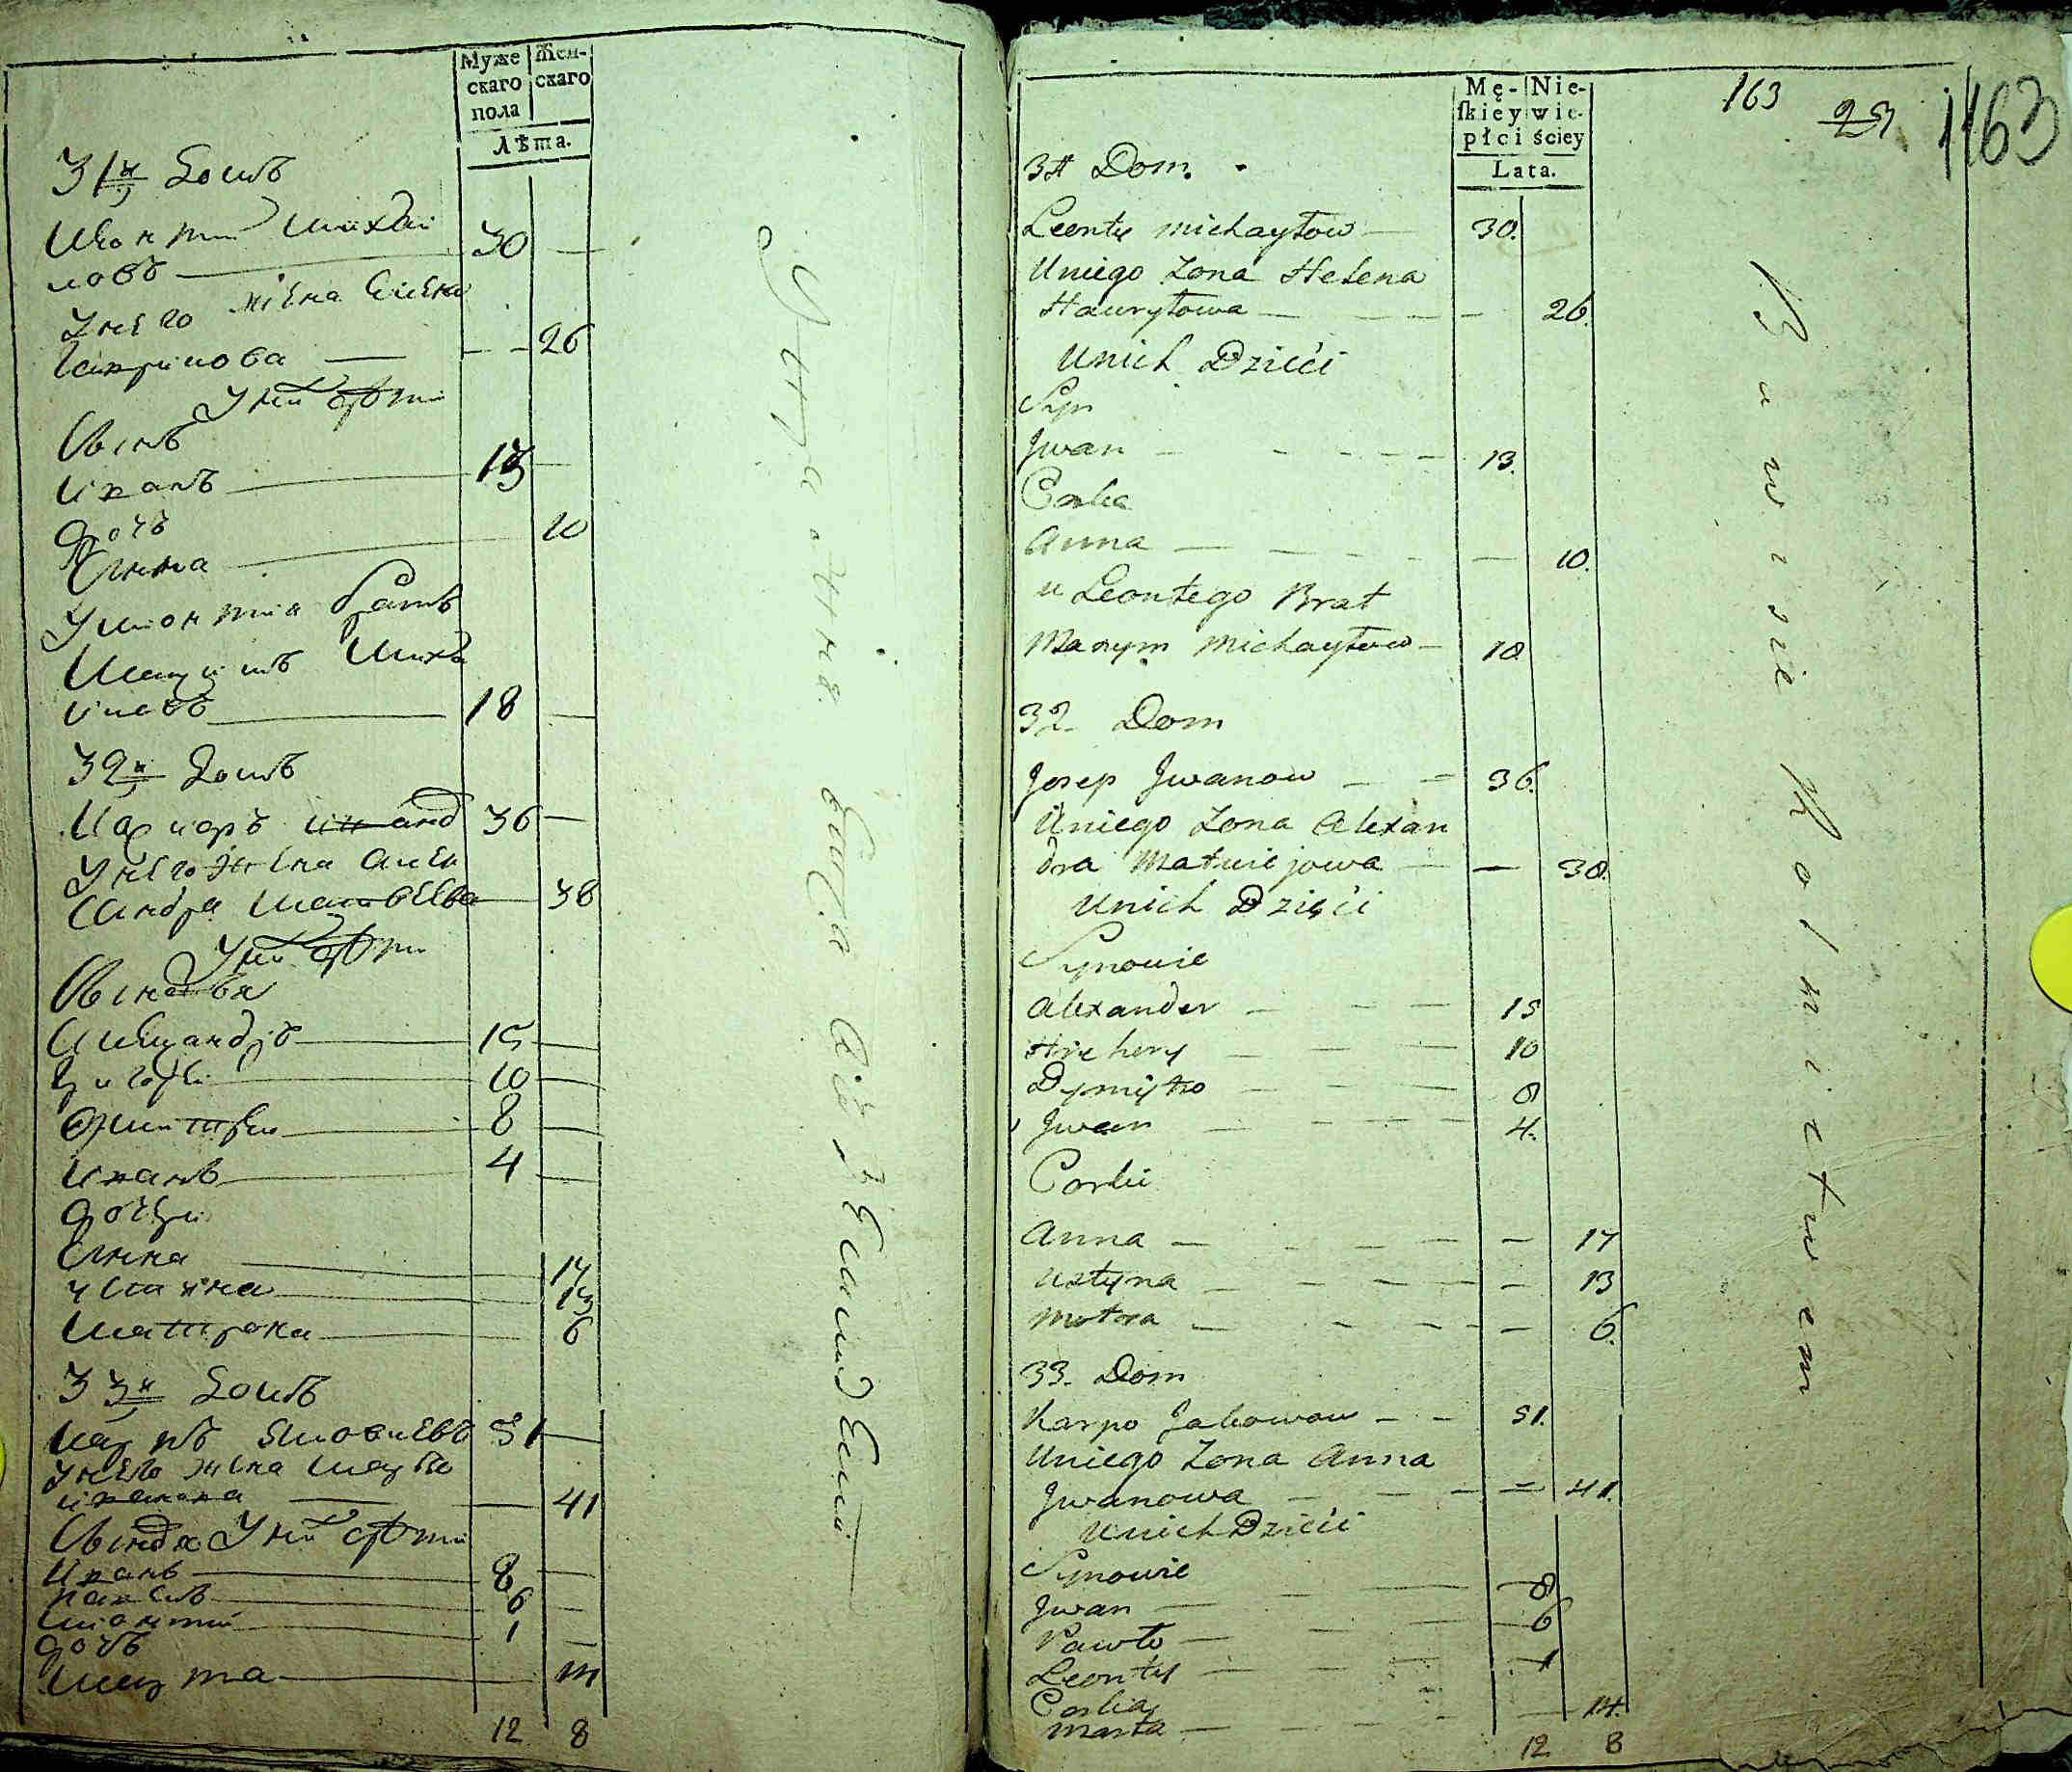 Муже
скаго
пола
Жен-
скаго
Лѣта.
31й Домъ
Леонтий Михай
ловъ 30
У него жена Елена
Гаврилова 26
У них дѣти
Сынъ
Иванъ 13
Дочь
Анна 10
У Леонтия братъ
Максимъ Миха
йловъ 18
32й Домъ
36
У него жена Алек
сандра Матвеева 38
У них дѣти
Сыновья
Александръ 15
Григорей 10
Дмитрей 8
Иванъ 4
Дочери
Анна 17
Устина 13
Матрона 6
33й Домъ
Карпъ Яковлевъ 51
У него жена
Иванова 41
Сыновя У них дѣти
Иванъ 8
Павелъ 6
Леонтий 1
Дочь
Марта 14
12 8
Mę-
skiey
płci
Nie-
wie-
ściey
Lata.
163 29 163
31 Dom.
Leonty Michayłow 30.
Uniego Zona Helena
Hawryłowa 26.
Unich Dzieći
Syn
Jwan 13.
Corka
Anna 10.
u Leontego Brat
Maxym Michayłow 18
32 Dom
Josep Jwanow 36.
Uniego Zona Alexan
dra Matwiejowa 38.
Unich Dzieći
Synowie
Alexander 15
Hrehery 10
Dymitro 8
Jwan 4.
Corki
Anna 17
Ustyna 13
Motora 6.
33. Dom
Karpo Jakowow 51.
Uniego Zona Anna
Jwanowa 41.
Unich Dzieći
Synowie
Jwan 8
Pawło 6
Leonty 1
Corka
Marta 14.
12 8
Bawisie Rolnictwem